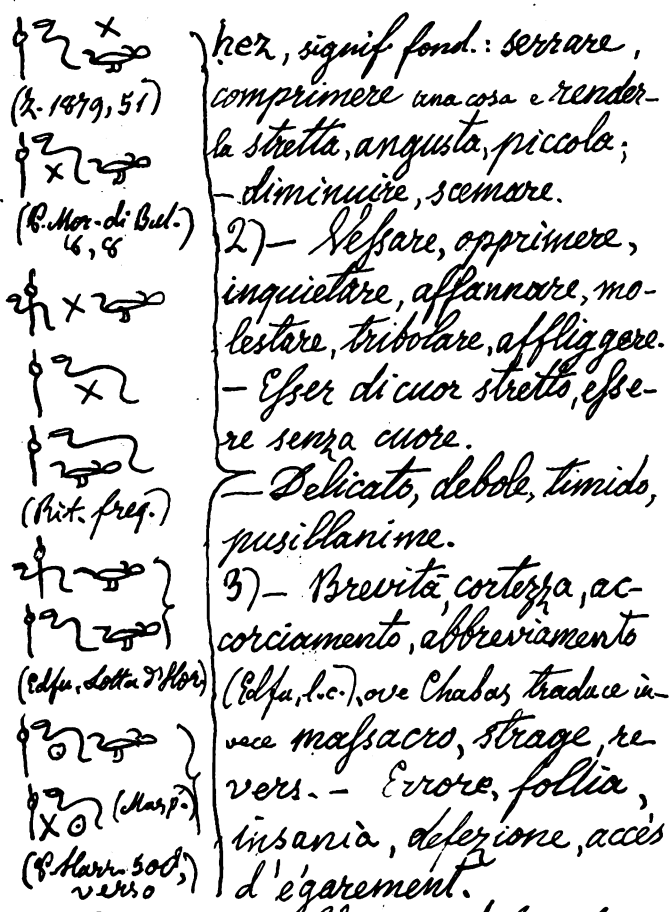 (Z. 1879, 51)
(P. Mor. di Bul.
6, 8)
(Rit. freq.)
(Edfu, Lotta d'Hor.)
(Masp.)
(P. Harr. 500,
verso
hez, signif. fond.: serrare,
comprimere una cosa e render-
la stretta, angusta, piccola;
— diminuire, scemare.
2)— Vessare, opprimere,
inquietare, affannare, mo-
lestare, tribolare, affliggere.
— Esser di cuor stretto, esse-
re senza cuore.
— Delicato, debole, timido,
pusillanime.
3)— Brevità, cortezza, ac-
corciamento, abbreviamento
(Edfu, l.c.), ove Chabas traduce in-
vece massacro, strage, re
vers. — Errore, follia,
insania, defezione, accès
d'égarement.